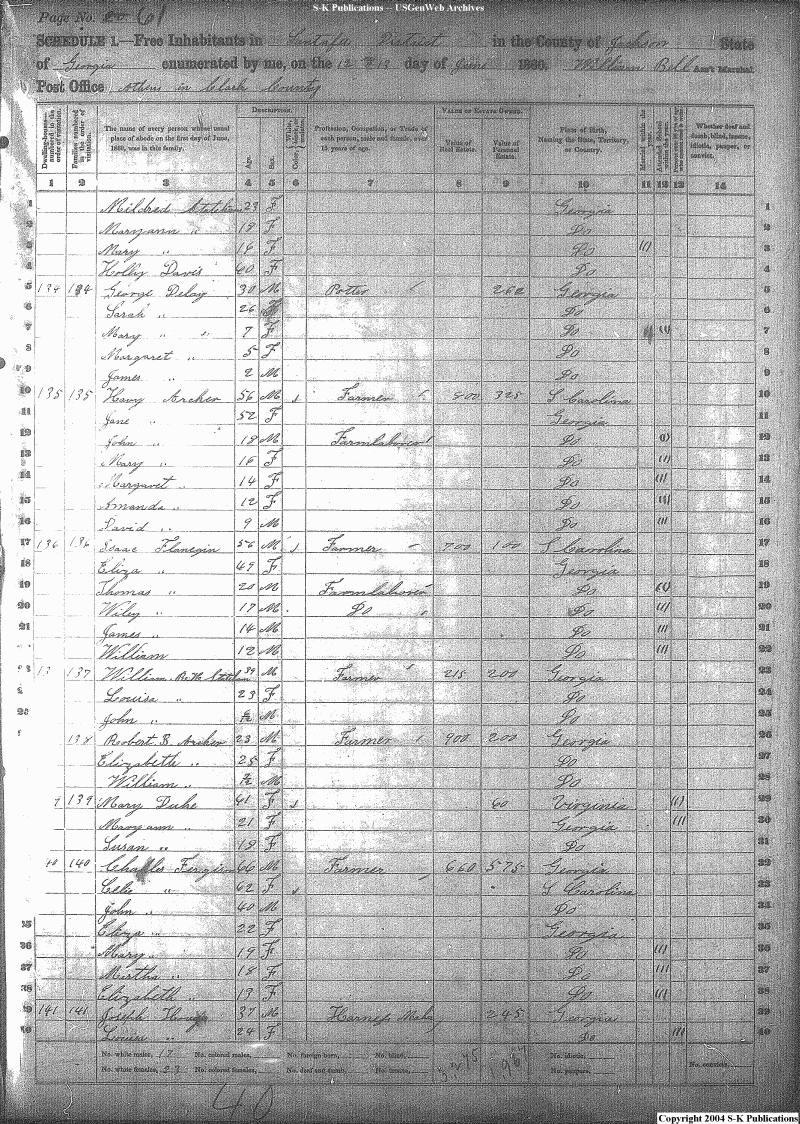 S-K Publications -- USGenWeb Archives
Page No. 61
SCHEDULE 1.—Free Inhabitants in Santafee District in the County of Jackson State
of Georgia enumerated by me, on the 12 & 13 day of June 1860. William Bell Ass't Marshal.
Post Office Athens in Clark County
DESCRIPTION. VALUE OF ESTATE OWNED.
Dwelling-houses—numbered in the order of visitation. Families numbered in the order of visitation. The name of every person whose usual place of abode on the first day of June, 1860, was in this family. Age. Sex. Color, Profession, Occupation, or Trade of each person, male and female, over 15 years of age. Value of Real Estate. Value of Personal Estate. Place of Birth, Naming the State, Territory, or Country. Married within the year. Attended School within the year. Whether deaf and dumb, blind, insane, idiotic, pauper, or convict.
1 2 3 4 5 6 7 8 9 10 11 12 13 14
1 Mildred 23 F Georgia 1
2 Maryann " 18 F Do
3 Mary " 16 F Do / 3
4 Holly Davis 60 F Do 4
5 134 134 George Delay 30 M Potter Georgia 5
6 Sarah " 26 F Do 6
7 Mary " " 7 F Do / 7
8 Margaret " 5 F Do 8
9 James " 2 M Do 9
10 135 135 Archer 56 M Farmer 800 325 S Carolina 10
11 Jane " 52 F Georgia 11
12 John " 18 M Farmlaborer Do / 12
13 Mary " 16 F Do / 13
14 Margaret " 14 F Do / 14
15 Amanda " 12 F Do / 15
16 David " 9 M Do / 16
17 136 136 Isaac Flanegin 56 M Farmer 700 100 S Carolina 17
18 Eliza " 49 F Georgia 18
19 Thomas " 20 M Farmlaborer Do / 19
20 Wiley " 17 M Do Do / 20
21 James " 14 M Do / 21
22 William 12 M Do / 22
23 13 137 William 39 M Farmer 215 200 Georgia 23
Louisa " 23 F Do 24
John " M Do 25
138 Robert S. Archer 23 M Farmer 900 200 Georgia 26
Elizabeth " 25 F Do 27
William " M Do 28
139 Mary Duke 61 F 60 Virginia / 29
Maryann " 21 F Georgia / 30
Susan " 18 F Do 31
40 140 Charles 66 M Farmer 660 575 Georgia 32
62 F S Carolina 33
John " 40 M Do 34
35 Eliza " 22 F Georgia 35
36 Mary " 19 F Do / 36
37 Martha " 18 F Do / 37
38 Elizabeth " 13 F Do / 38
141 141 Joseph 37 M Harness Maker 245 Georgia 39
40 Louisa " 24 F Do / 40
No. white males, 17 No. colored males, No. foreign born, No. blind, No. idiotic,
No. white females, 23 No. colored females, No. deaf and dumb, No. insane, No. paupers, No. convicts,
40
Copyright 2004 S-K Publications